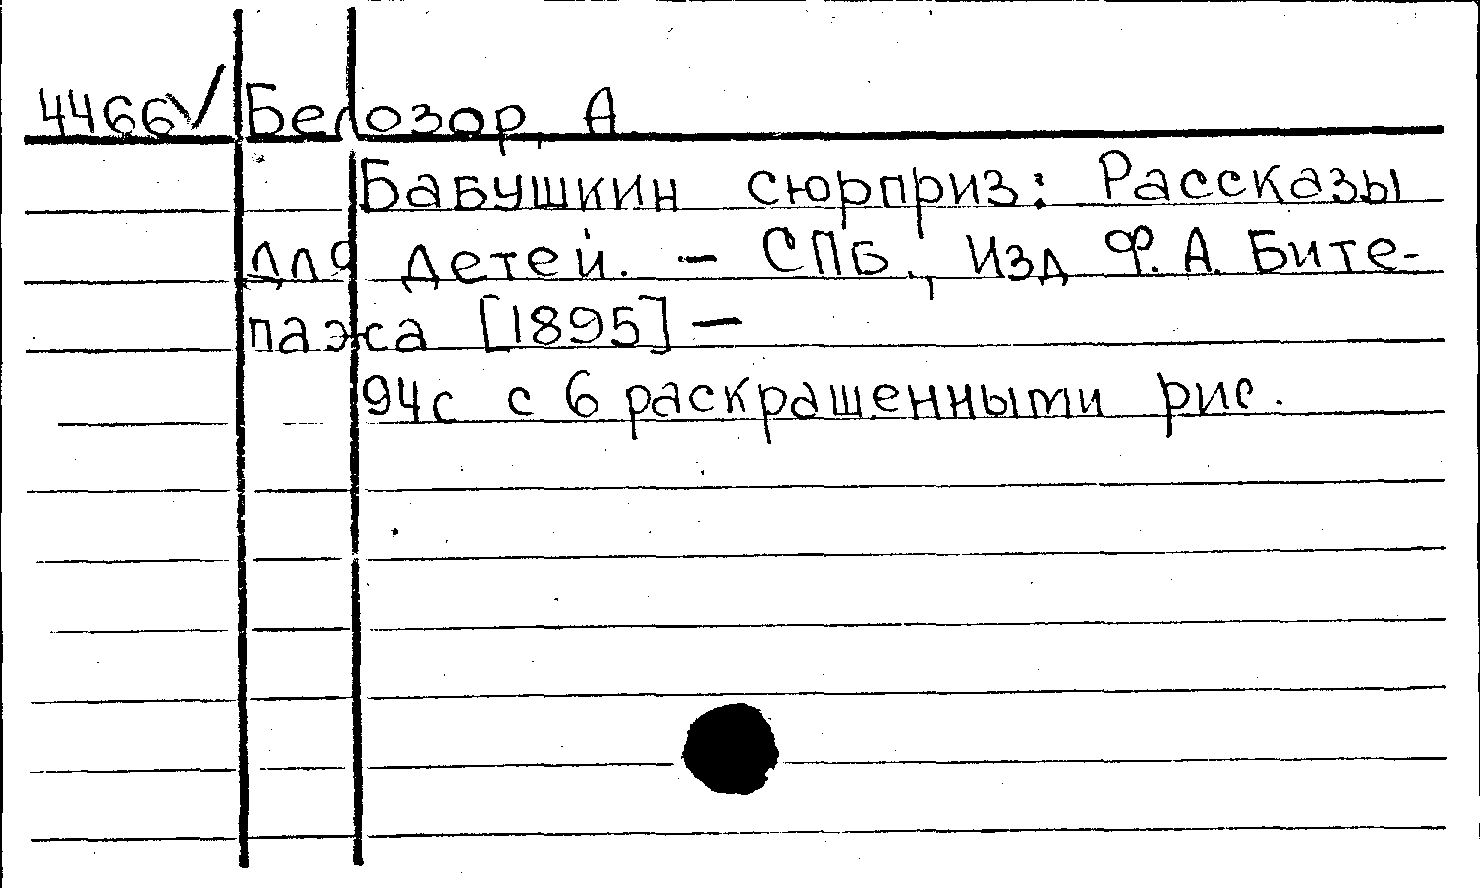 4466√ Белозор, А
Бабушкин сюрприз: Рассказы
для детей. — СПБ., Изд Ф. А. Бите-
пажа [1895] —
94с с 6 раскрашенными рис.